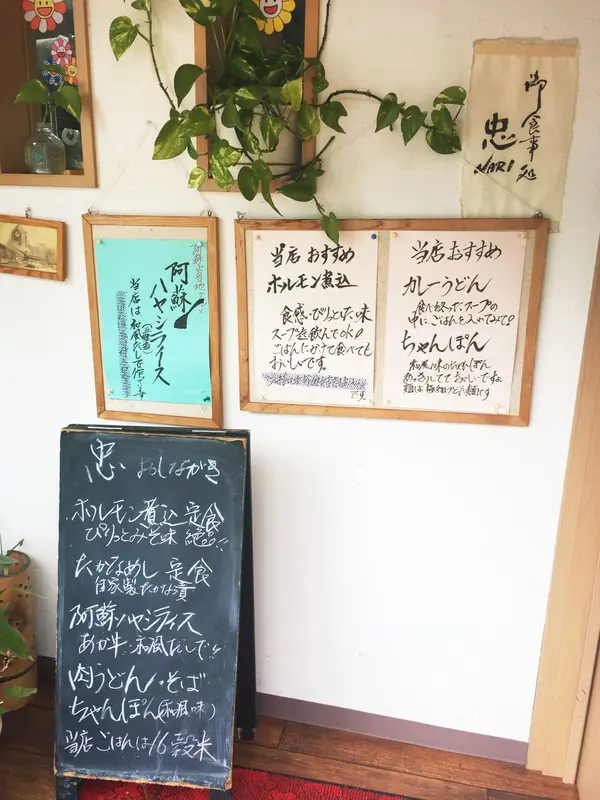 御食事処
忠
NARI
阿蘇ご当地グルメ
阿蘇
ハヤシライス
当店は和風だしで作ってます
当店おすすめ
ホルモン煮込
食感・ぴりっとした味
スープ迄飲んでOK!
ごはんにかけて食べても
おいしいです。
です
当店おすすめ
カレーうどん
食べ終ったスープの
中にごはんを入れてみて!
ちゃんぽん
和風味のちゃんぽん
あっさりしてておいしいですよ
麺は極細うどん麺です
忠 おしながき
ホルモン煮込定食
ぴりっとみそ味 絶品!!
たかなめし定食
自家製たかな漬
阿蘇ハヤシライス
あか牛・和風だしで!!
肉うどん・そば
ちゃんぽん(和風味)
当店ごはんは16穀米